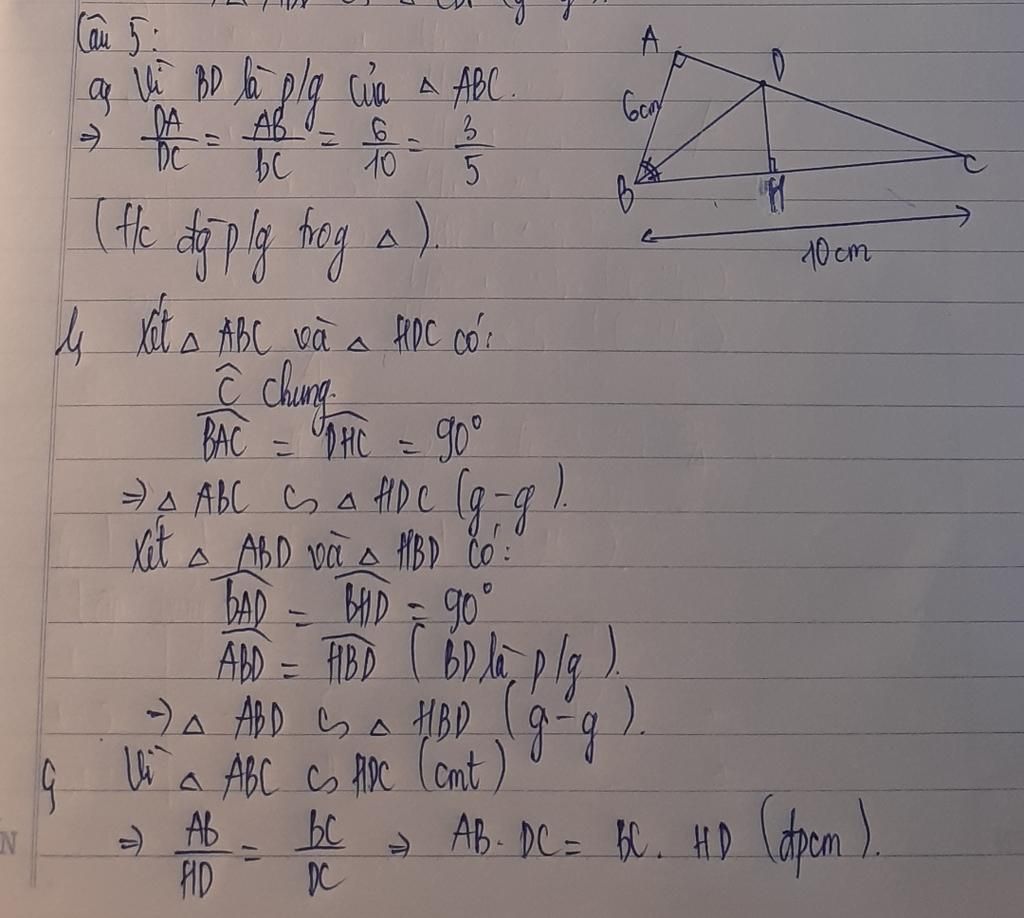 Câu 5:
a, Vì BD là p/g của △ ABC.
⇒ DA/DC = AB/BC = 6/10 = 3/5
(t/c đg p/g trog △).
A
D
6cm
B
H
C
10cm
b, Xét △ ABC và △ HDC có:
Ĉ chung.
BAC = DHC = 90°
⇒ △ ABC ∽ △ HDC (g-g).
Xét △ ABD và △ HBD có:
BAD = BHD = 90°
ABD = HBD (BD là p/g).
⇒ △ ABD ∽ △ HBD (g-g).
c, Vì △ ABC ∽ HDC (cmt)
⇒ AB/HD = BC/DC ⇒ AB. DC = BC. HD (đpcm).
N